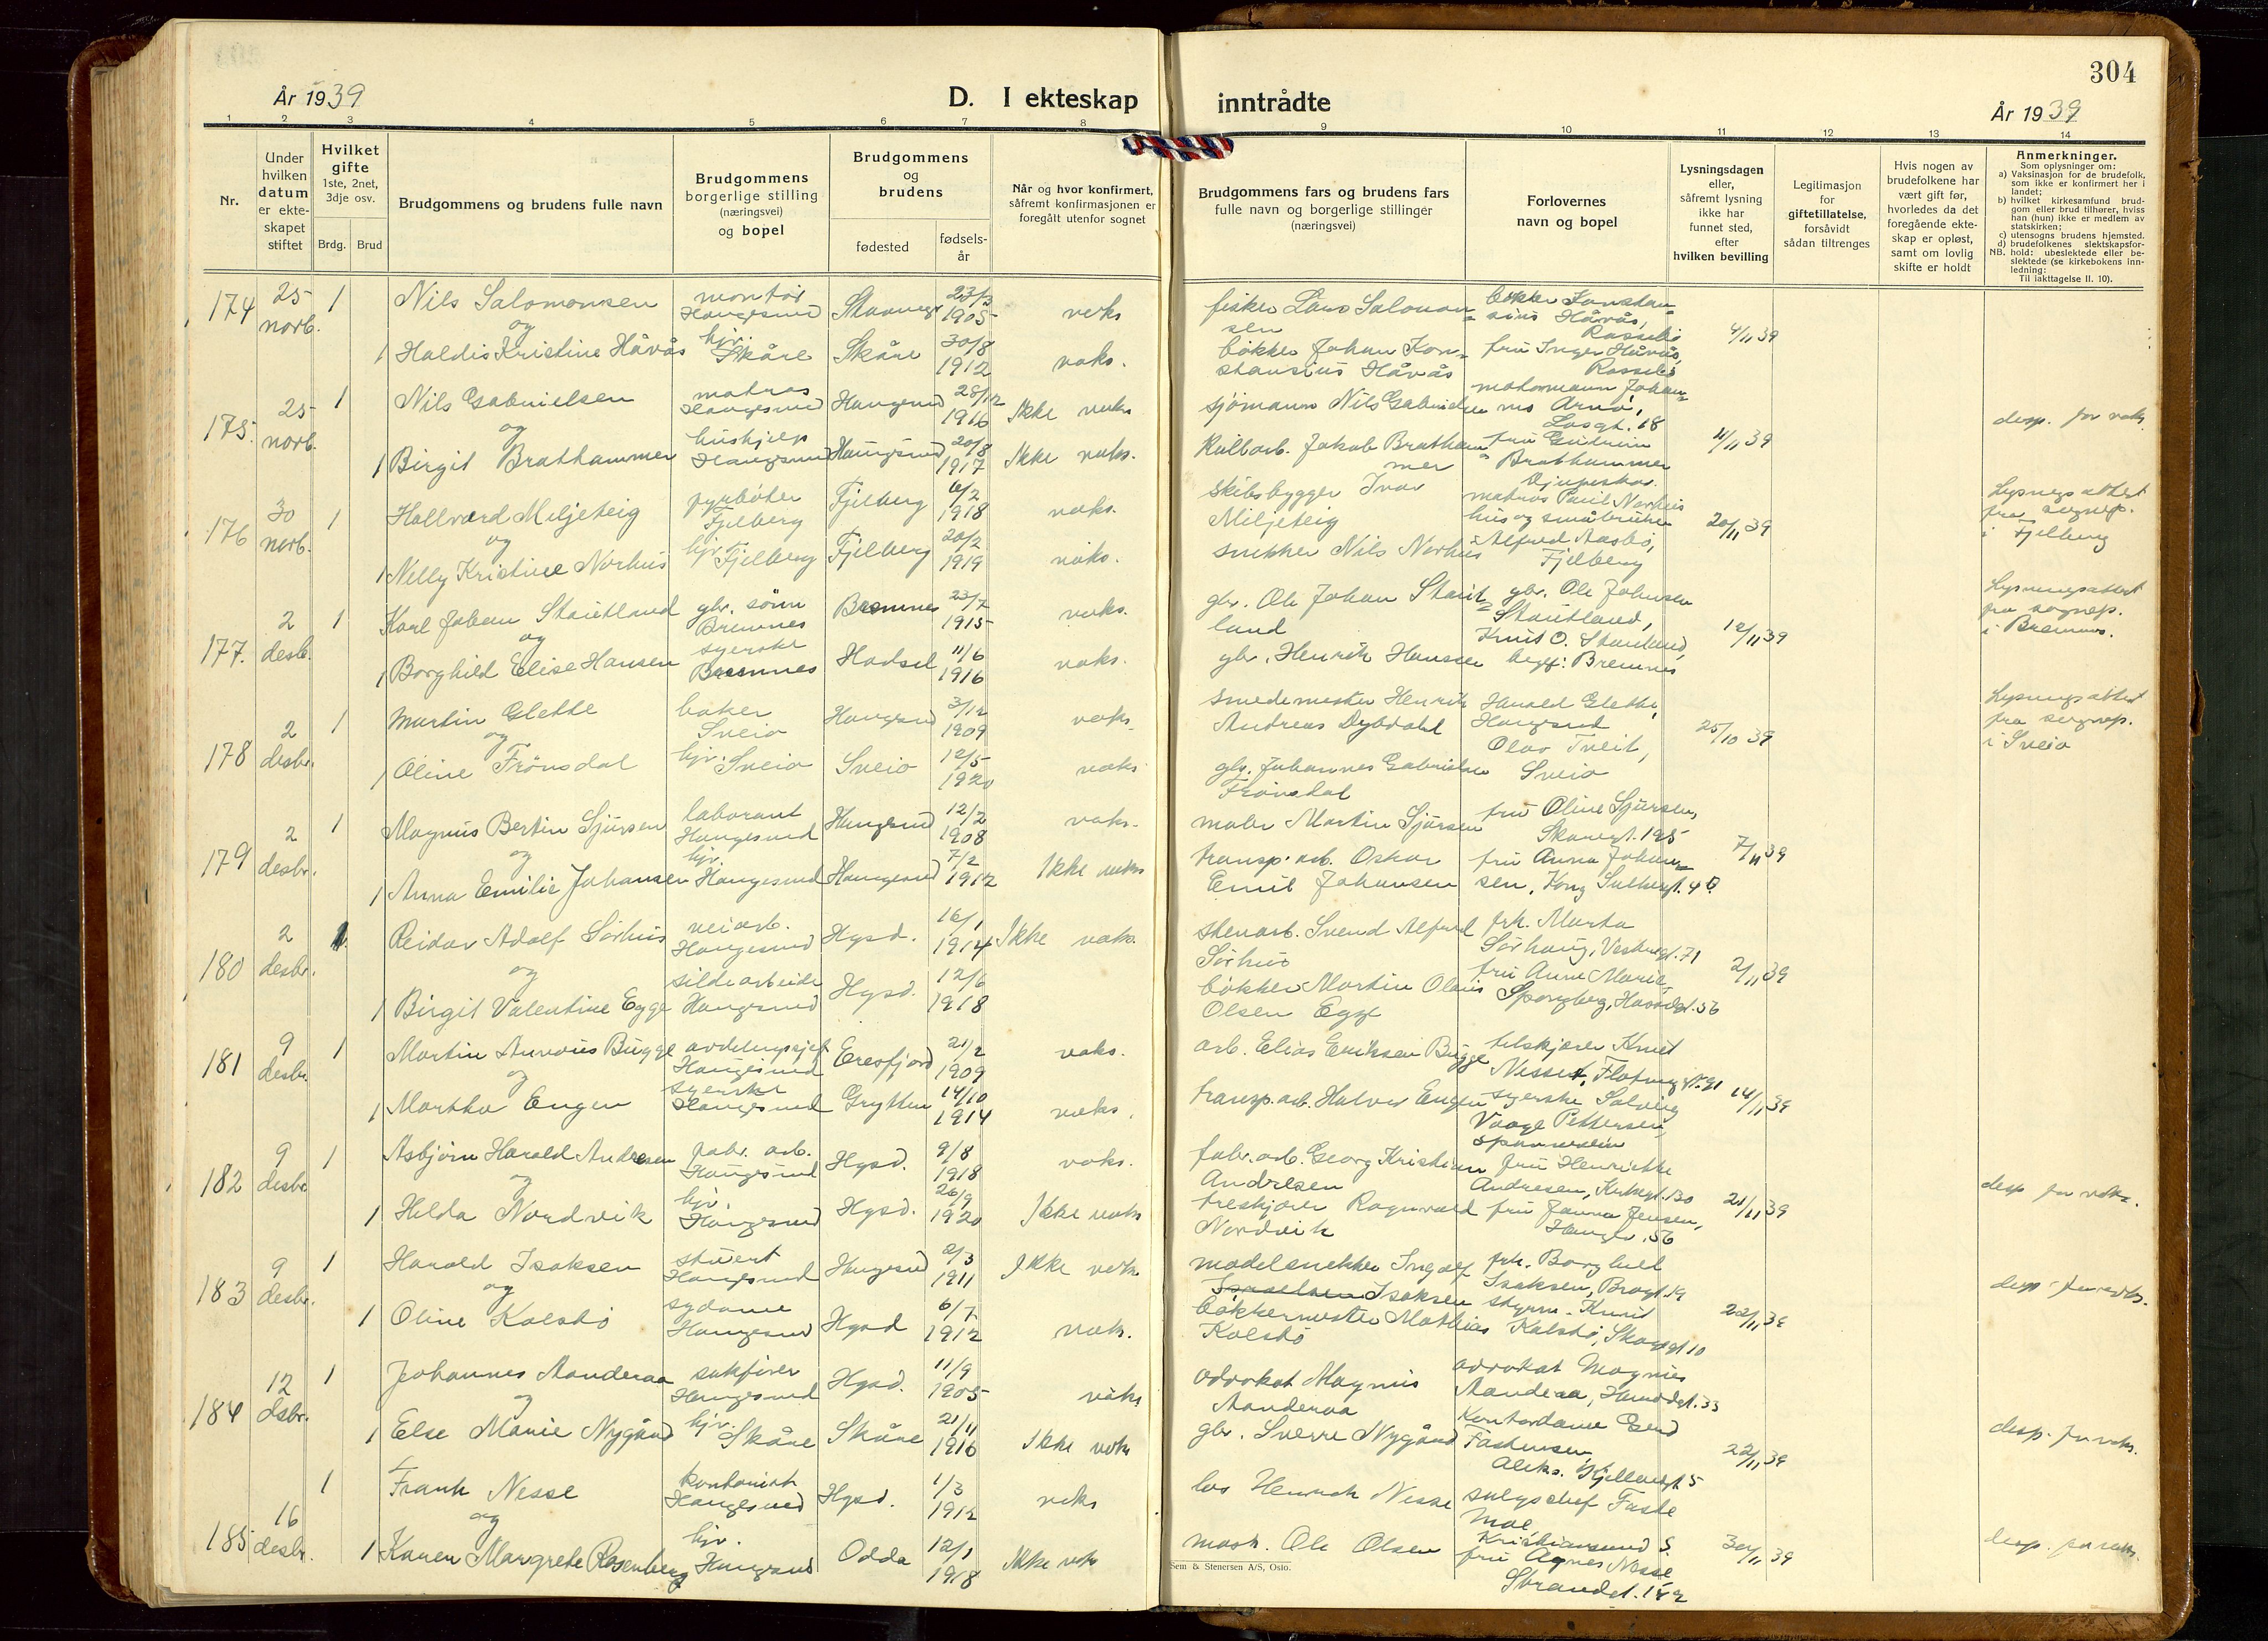 304
År 1939
D. I ekteskap inntrådte
År 1939
1 2 3 4 5 6 7 8 9 10 11 12 13 14
Nr.
Under hvilken datum er ekteskapet stiftet
Hvilket gifte 1ste, 2net, 3dje osv.
Brdg. Brud
Brudgommens og brudens fulle navn
Brudgommens borgerlige stilling (næringsvei) og bopel
Brudgommens og brudens
fødested
fødsels-år
Når og hvor konfirmert, såfremt konfirmasjonen er foregått utenfor sognet
Brudgommens fars og brudens fars fulle navn og borgerlige stillinger (næringsvei)
Forlovernes navn og bopel
Lysningsdagen eller, såfremt lysning ikke har funnet sted, efter hvilken bevilling
Legitimasjon for giftetillatelse, forsåvidt sådan tiltrenges
Hvis nogen av brudefolkene har vært gift før, hvorledes da det foregående ekteskap er opløst, samt om lovlig skifte er holdt
Anmerkninger.
Som oplysninger om:
a) Vaksinasjon for de brudefolk, som ikke er konfirmert her i landet;
b) hvilket kirkesamfund brudgom eller brud tilhører, hviss han (hun) ikke er medlem av statskirken;
c) utensogns brudens hjemsted.
d) brudefolkenes slektskapsforhold: ubeslektede eller beslektede (se kirkebokens innledning:
NB. Til iakttagelse II. 10).
174 25 novb. 1 Nils Salomonsen montør Haugesund Stavanger 23/3 1905 vaks fisker Lars Salomonsen bøkker Konstansius Håvås, Rossebø 4/11 39
og
1 Haldis Kristine Håvås hjv. Skåre Skåre 30/8 1912 vaks. bøkker Johan Konstansius Håvås fru Inger Håvås, Rossebø
175. 25 novb. 1 Nils Gabrielsen matros Haugesund Haugesund 28/12 1916 Ikke vaks sjømann Nils Gabrielsen motormann Johannes Arnø, gt. 18 11/11 39 desp. for vaks.
og
1 Birgit Brathammer hushjelp Haugesund Haugesund 20/8 1917 Ikke vaks. kullarb. Jakob Brathammer fru Gudrun Brathammer Djupaskar.
176 30 novb. 1 Hallvard Miljeteig Fjelberg Fjelberg 6/2 1918 vaks. skibsbygger Ivar Miljeteig matros Paul Norhus 20/11 39 Lysningsattest fra sognep. i Fjelberg
og
1 Nelly Kristine Norhus hjv. Fjelberg Fjelberg 20/2 1919 vaks. snekker Nils Norhus hus og småbruker Alfred Aasbø, Fjelberg
177. 2 desb. 1 Karl Johan Stautland gbr. sønn Bremnes Bremnes 23/7 1915 vaks. gbr. Ole Johan Stautland gbr. Ole Johnsen Stautland, 12/11 39 Lysningsattest fra sognep. i Bremnes.
og
1 Borghild Elise Hansen syerske Bremnes Hadsel 11/6 1916 vaks. gbr. Henrik Hansen Knut O. Stautland, begge: Bremnes
178 2 desbr. 1 Martin Glette baker Sveio Haugesund 3/12 1909 vaks. smedemester Henrik Andreas Dybdahl Harald Glette, Haugesund 25/10 39 Lysningsattest fra sognep. i Sveio
og
1 Oline Frønsdal hjv. Sveio Sveio 12/5 1920 vaks gbr. Johannes Gabrielsen Frønsdal Olav Tveit, Sveio
179 2 desbr. 1 Magnus Bertin Sjursen laborant Haugesund Haugesund 12/2 1908 vaks. maler Martin Sjursen fru Oline Sjursen, Skaregt. 195 7/11 39
og
1 Anna Emilie Johansen hjv. Haugesund Haugesund 7/2 1912 Ikke vaks transp. arb. Oskar Emil Johansen fru Anna Johansen, Kong Sverresgt. 40
180 2 desbr. 1 Reidar Adolf Sørhus veiarb. Haugesund Hgsd. 16/1 1914 Ikke vaks. stenarb. Svend Alfred Sørhus frk. Marta Sørhaug, Vestregt. 71 2/11 39
og
1 Birgit Valentine Egge sildearbeide Haugesund Hgsd. 12/6 1918 bøkker Martin Olaus Olsen Egge fru Anne Marie Spongberg, 56
181 9 desbr. 1 Martin Bugge avdelingssjef Haugesund Eresfjord 21/2 1909 vaks. arb. Elias Eriksen Bugge telskjører Knut 14/11 39
og
1 Martha Engen syerske Haugesund Grytten 14/10 1914 vaks. transp.arb. Halvor Engen syerske Solveig Vaage Pettersen,
182 9 desbr 1 Asbjørn Harald Andresen fabr. arb. Haugesund Hgsd. 9/8 1918 vaks. fabr.arb. Georg Kristian Andresen fru Henrikke Andresen, Kirkegt. 130 21/11 39 desp for vaks.
og
1 Hilda Nordvik hjv. Haugesund Hgsd. 26/9 1920 Ikke vaks treskjærer Ragnvald Nordvik fru Janna Jensen, 56
183 9 desbr. 1 Harald Isaksen stuert Haugesund Haugesund 2/3 1911 Ikke vaks modelsnekker Ingolf Isaksen frk. Borghild Isaksen, 19 22/11 39 desp for vaks.
og
1 Oline Kolstø sydame Haugesund Hgsd 6/7 1912 vaks. bøkkermester Mathias Kolstø styrm. Knut Kolstø, Skaregt 10
184 12 dsbr. 1 Johannes Aanderaa sakfører Haugesund Hgsd. 11/9 1905 vaks advokat Magnus Aanderaa advokat Magnus Aanderaa, 33 22/11 39 desp. for vaks.
og
1 Else Marie Nygård hjv. Skåre Skåre 21/11 1916 Ikke vaks gbr. Sverre Nygård Kontordame Gerd Aleks. Kjellandsgt 5
185 16 desbr. 1 Frank Nesse kontorist Haugesund Hgsd. 1/3 1912 vaks los Henrik Nesse salgschef Faste Moe Kristiansund S. 30/11 39 desp. for vaks.
og
1 Karen Margrete Rosenberg hjv. Haugesund Odda 12/1 1918 Ikke vaks mask. Ole Olsen fru Agnes Nesse Strandgt. 152
Sem & Stenersen A/S, Oslo.